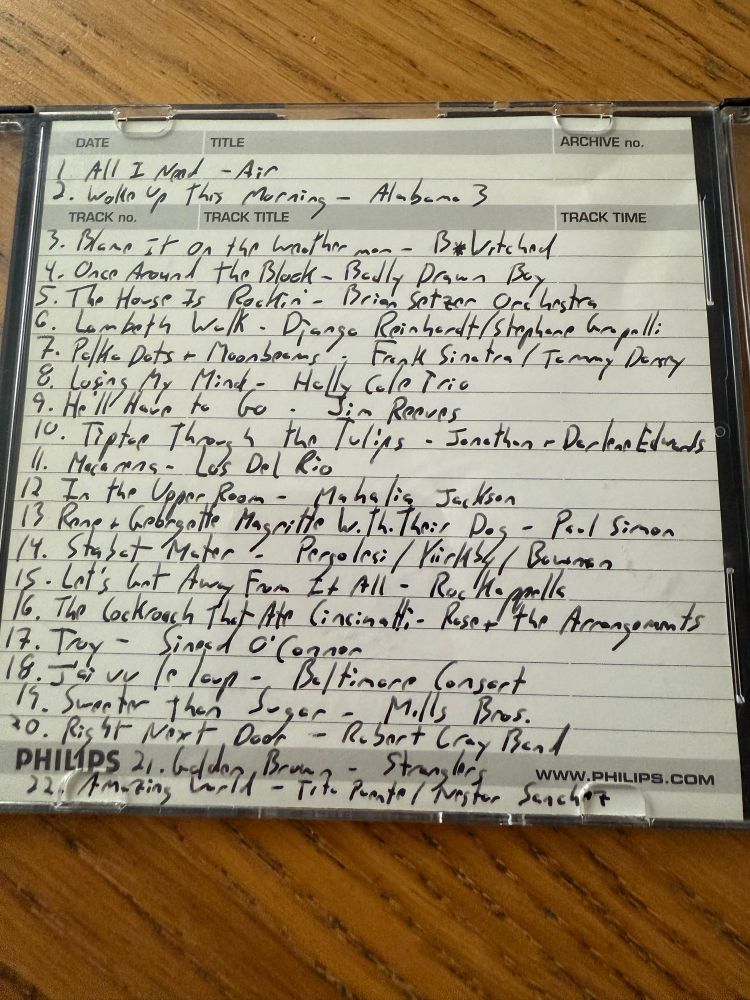 DATE TITLE ARCHIVE no.
1. All I Need - Air
2. Woke Up This Morning - Alabama 3
TRACK no. TRACK TITLE TRACK TIME
3. Blame It On the Weatherman - B*Witched
4. Once Around the Block - Badly Drawn Boy
5. The House Is Rockin' - Brian Setzer Orchestra
6. Lambeth Walk - Django Reinhardt/Stephane Grapelli
7. Polka Dots + Moonbeams - Frank Sinatra/Tommy Dorsey
8. Losing My Mind - Holly Cole Trio
9. He'll Have to Go - Jim Reeves
10. Tiptoe Through the Tulips - Jonathan + Darlene Edwards
11. Macarena - Los Del Rio
12 In the Upper Room - Mahalia Jackson
13 Rene + Georgette Magritte W.Th.Their Dog - Paul Simon
14. Stabat Mater - Pergolesi/Kirkby/Bowman
15. Let's Get Away From It All - Rockappella
16. The Cockroach That Ate Cincinatti - Rose + the Arrangements
17. Troy - Sinead O'Connor
18. J'ai vu le loup - Baltimore Consort
19. Sweeter than Sugar - Mills Bros.
20. Right Next Door - Robert Cray Band
PHILIPS 21. Golden Brown - Stranglers WWW.PHILIPS.COM
22. Amazing World - Tito Puente/Nestor Sanchez